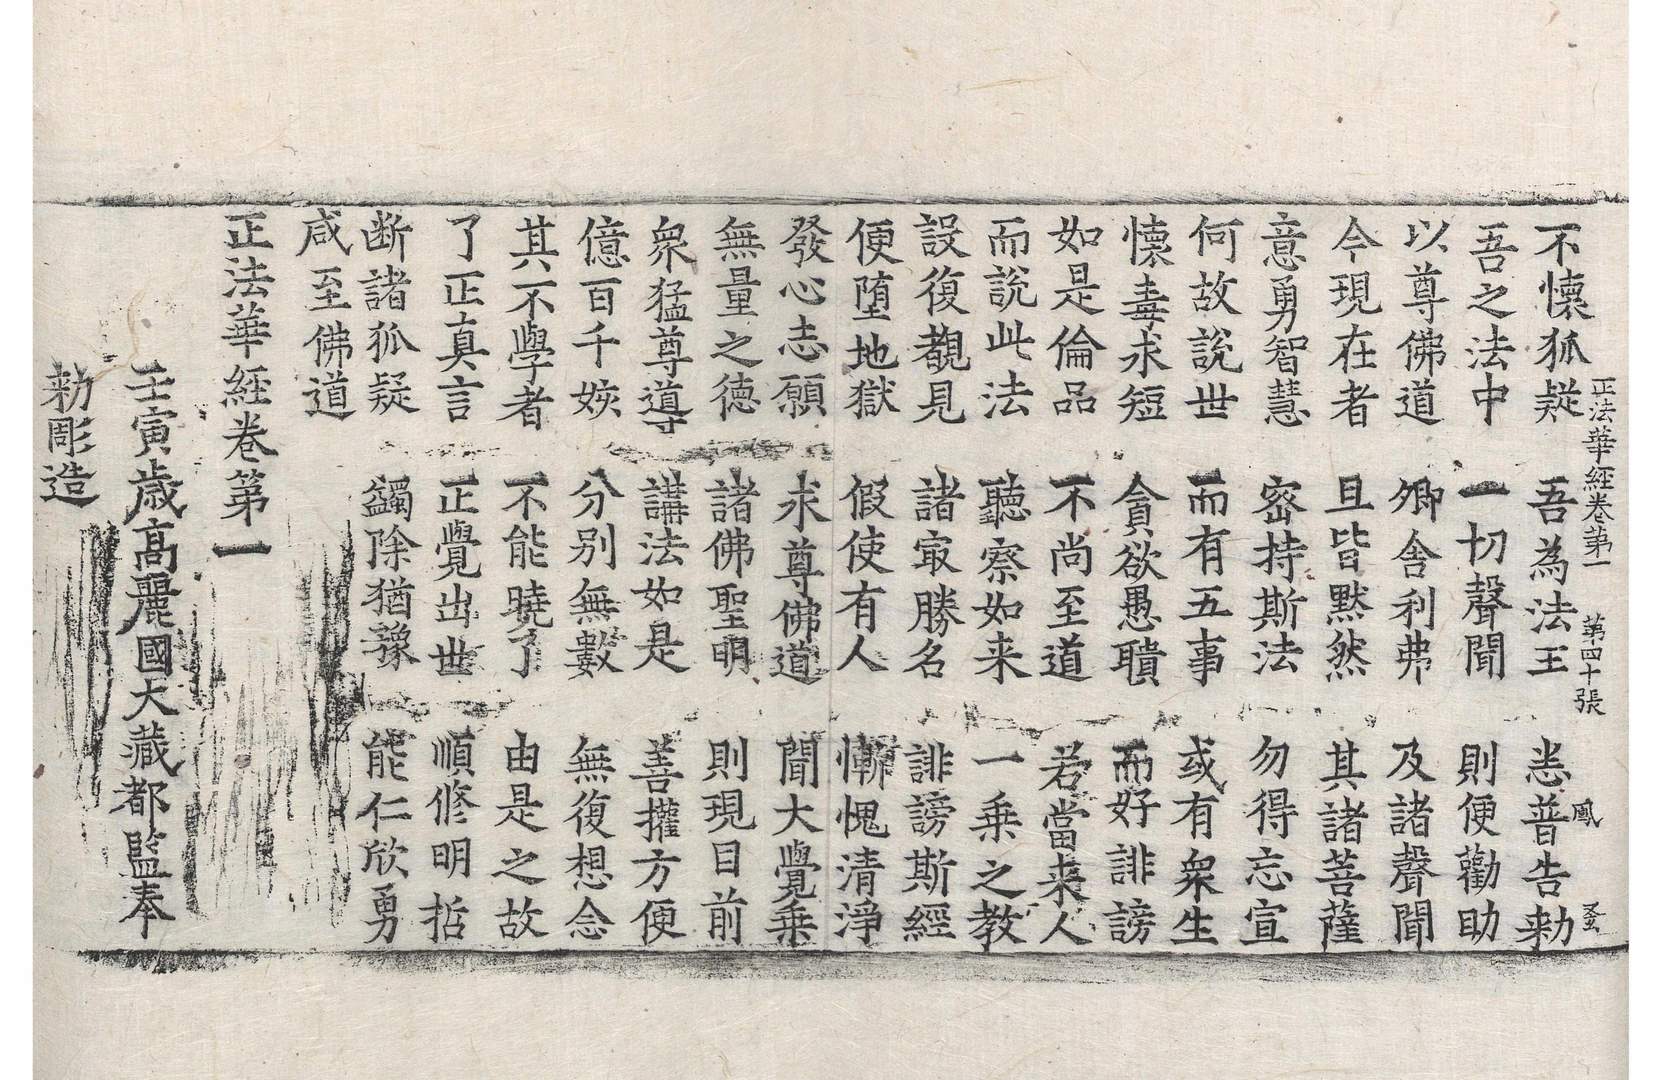 正法華経卷第一　第四十張　鳳
不懷狐疑　吾為法王　悉普告勑
吾之法中　一切聲聞　則便勸助
以尊佛道　卿舍利弗　及諸聲聞
今現在者　且皆默然　其諸菩薩
意勇智慧　密持斯法　勿得忘宣
何故說世　而有五事　或有衆生
懷毒求短　貪欲愚聵　而好誹謗
如是倫品　不尚至道　若當来人
而說此法　聽察如来　一乗之教
設復覩見　諸㝡勝名　誹謗斯經
便墮地獄　假使有人　慚愧清淨
發心志願　求尊佛道　聞大覺乗
無量之德　諸佛聖明　則現目前
衆猛尊導　講法如是　善權方便
億百千姟　分別無數　無復想念
其不學者　不能曉了　由是之故
了正真言　正覺出世　順修明哲
断諸狐疑　蠲除猶豫　能仁欣勇
咸至佛道
正法華經卷第一
壬寅歲高麗國大藏都監奉
勑彫造